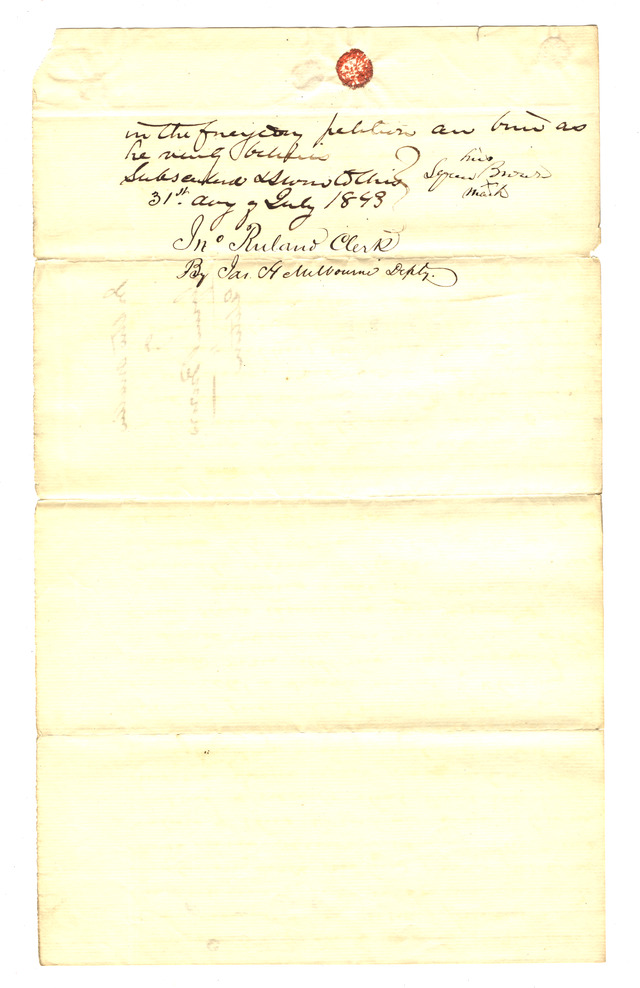 in the foregoing petition are true as
he verily believes
Subscribed & Sworn to this
31st day of July 1843
his
Squire Brown
mark
Jno Ruland Clerk
By Jas. H Milbourne Depty.